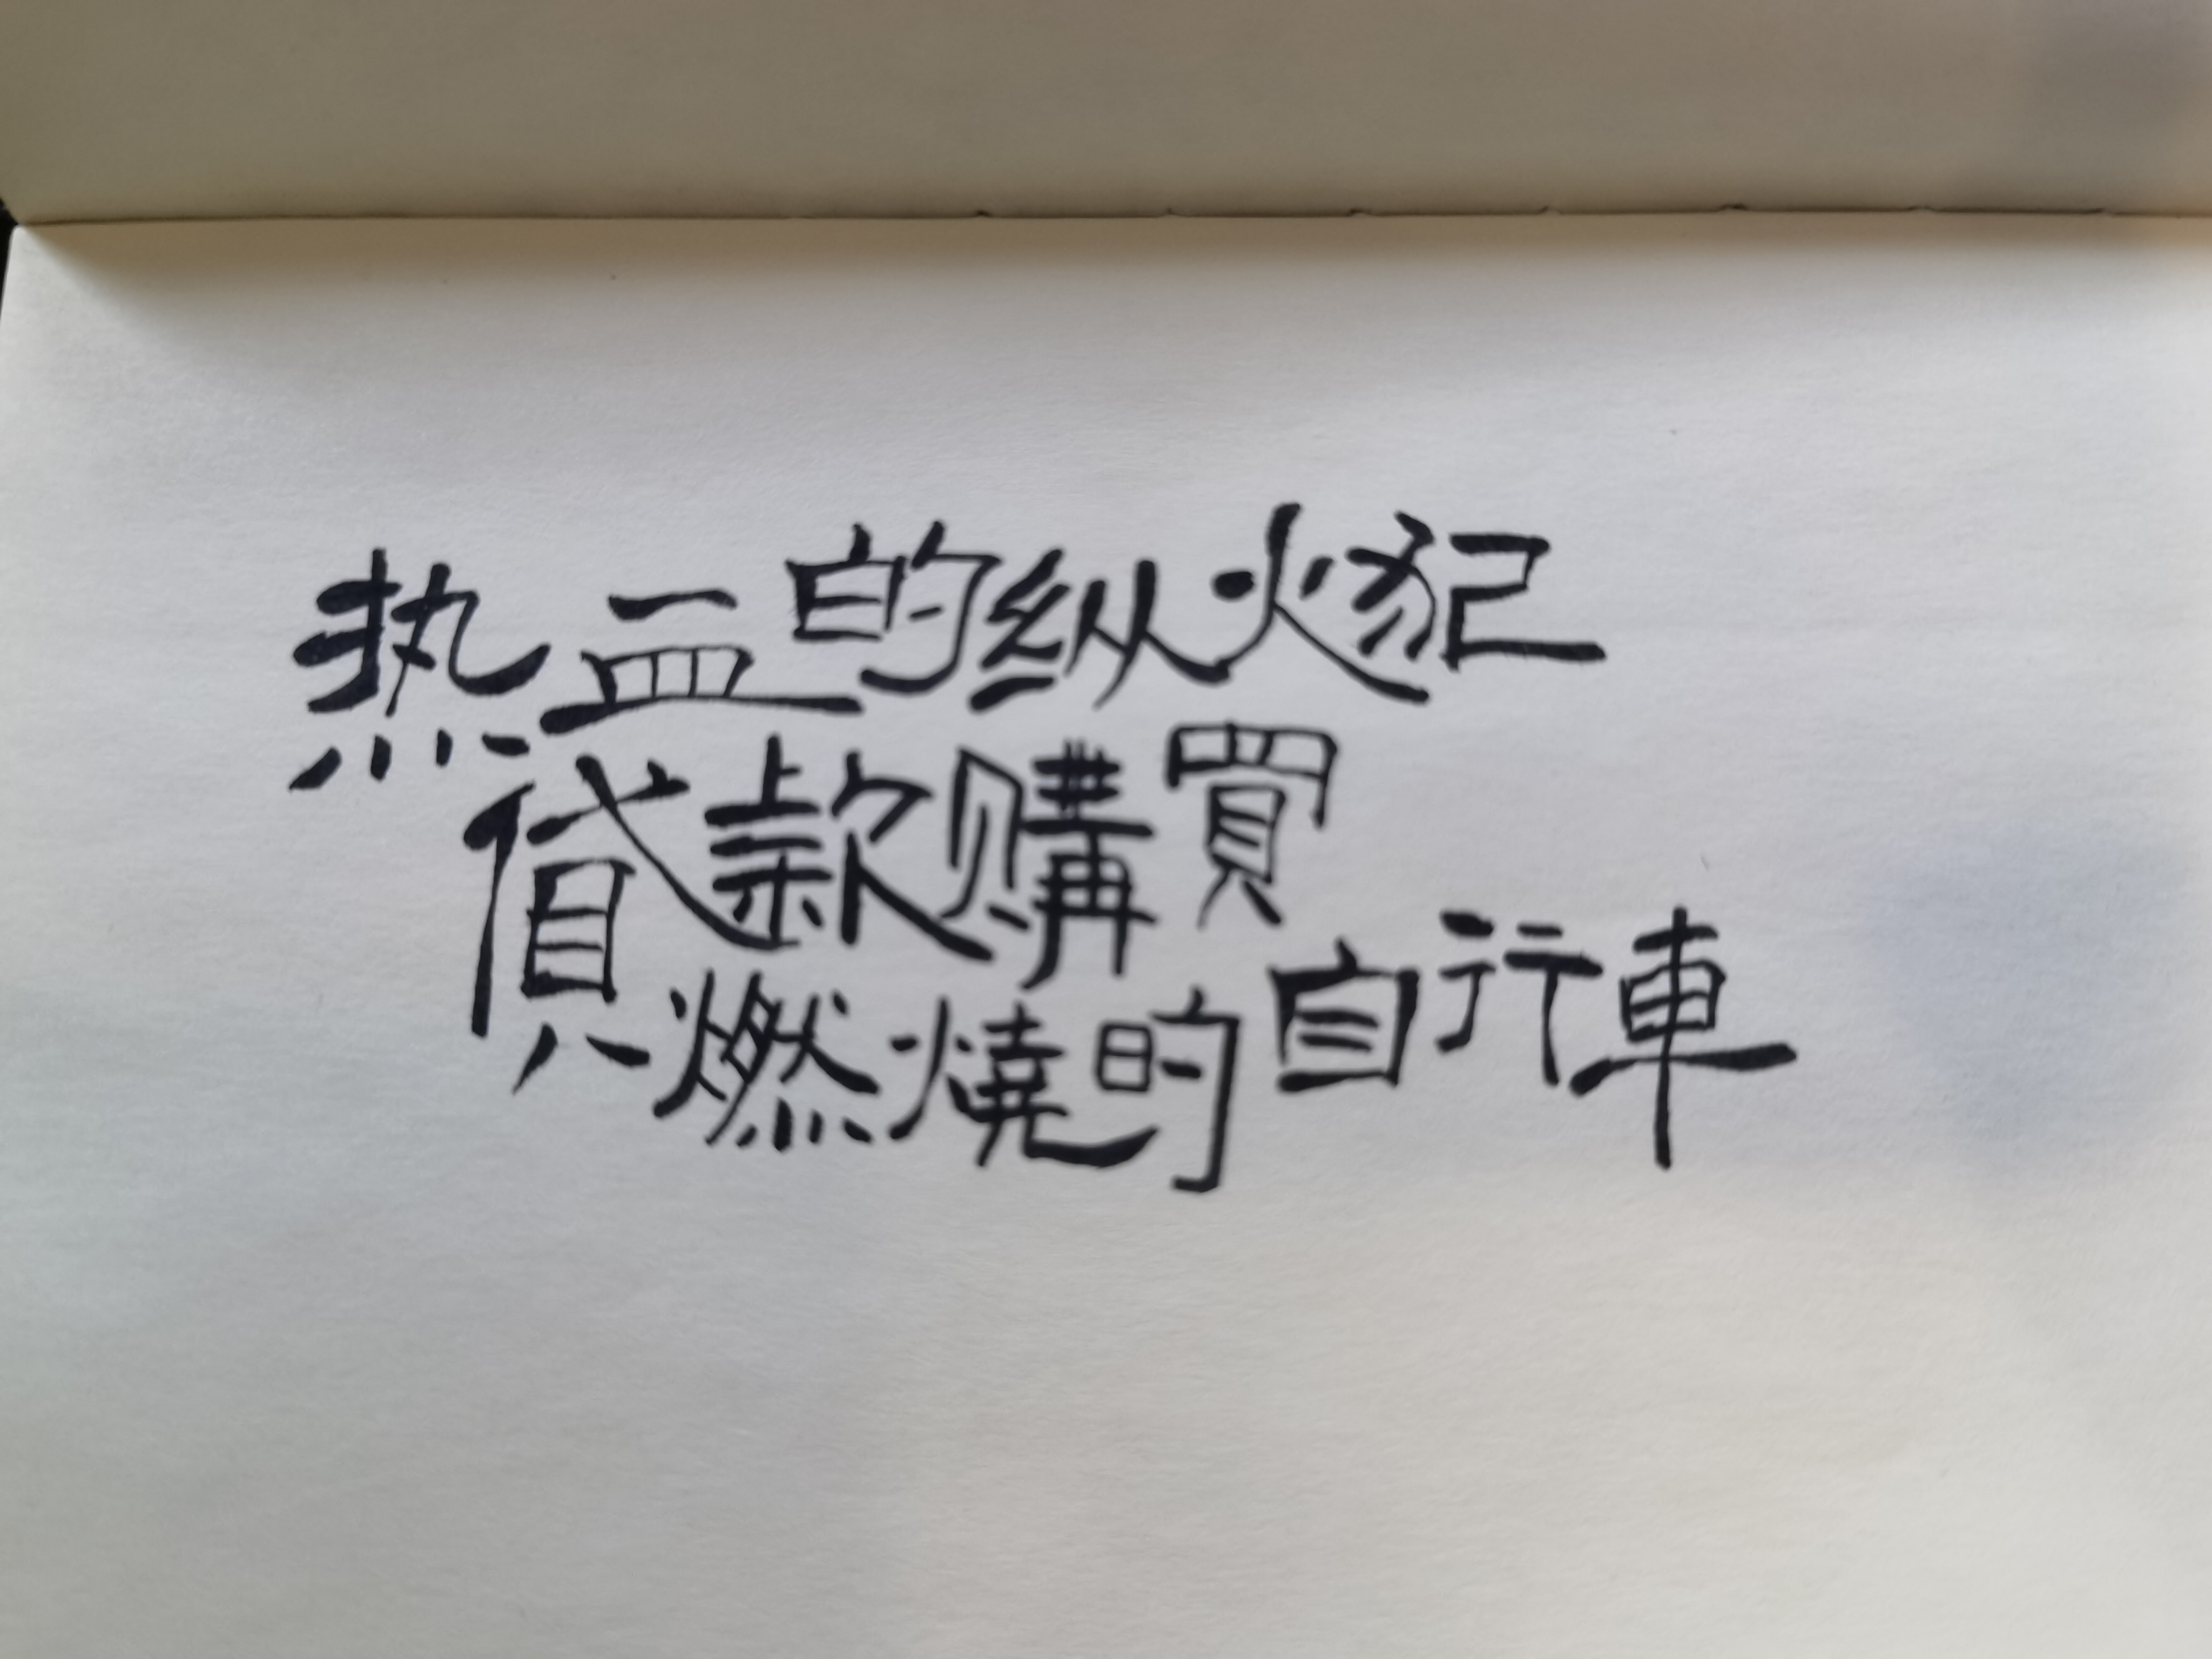 热血的纵火犯
貸款购買
燃燒的自行車